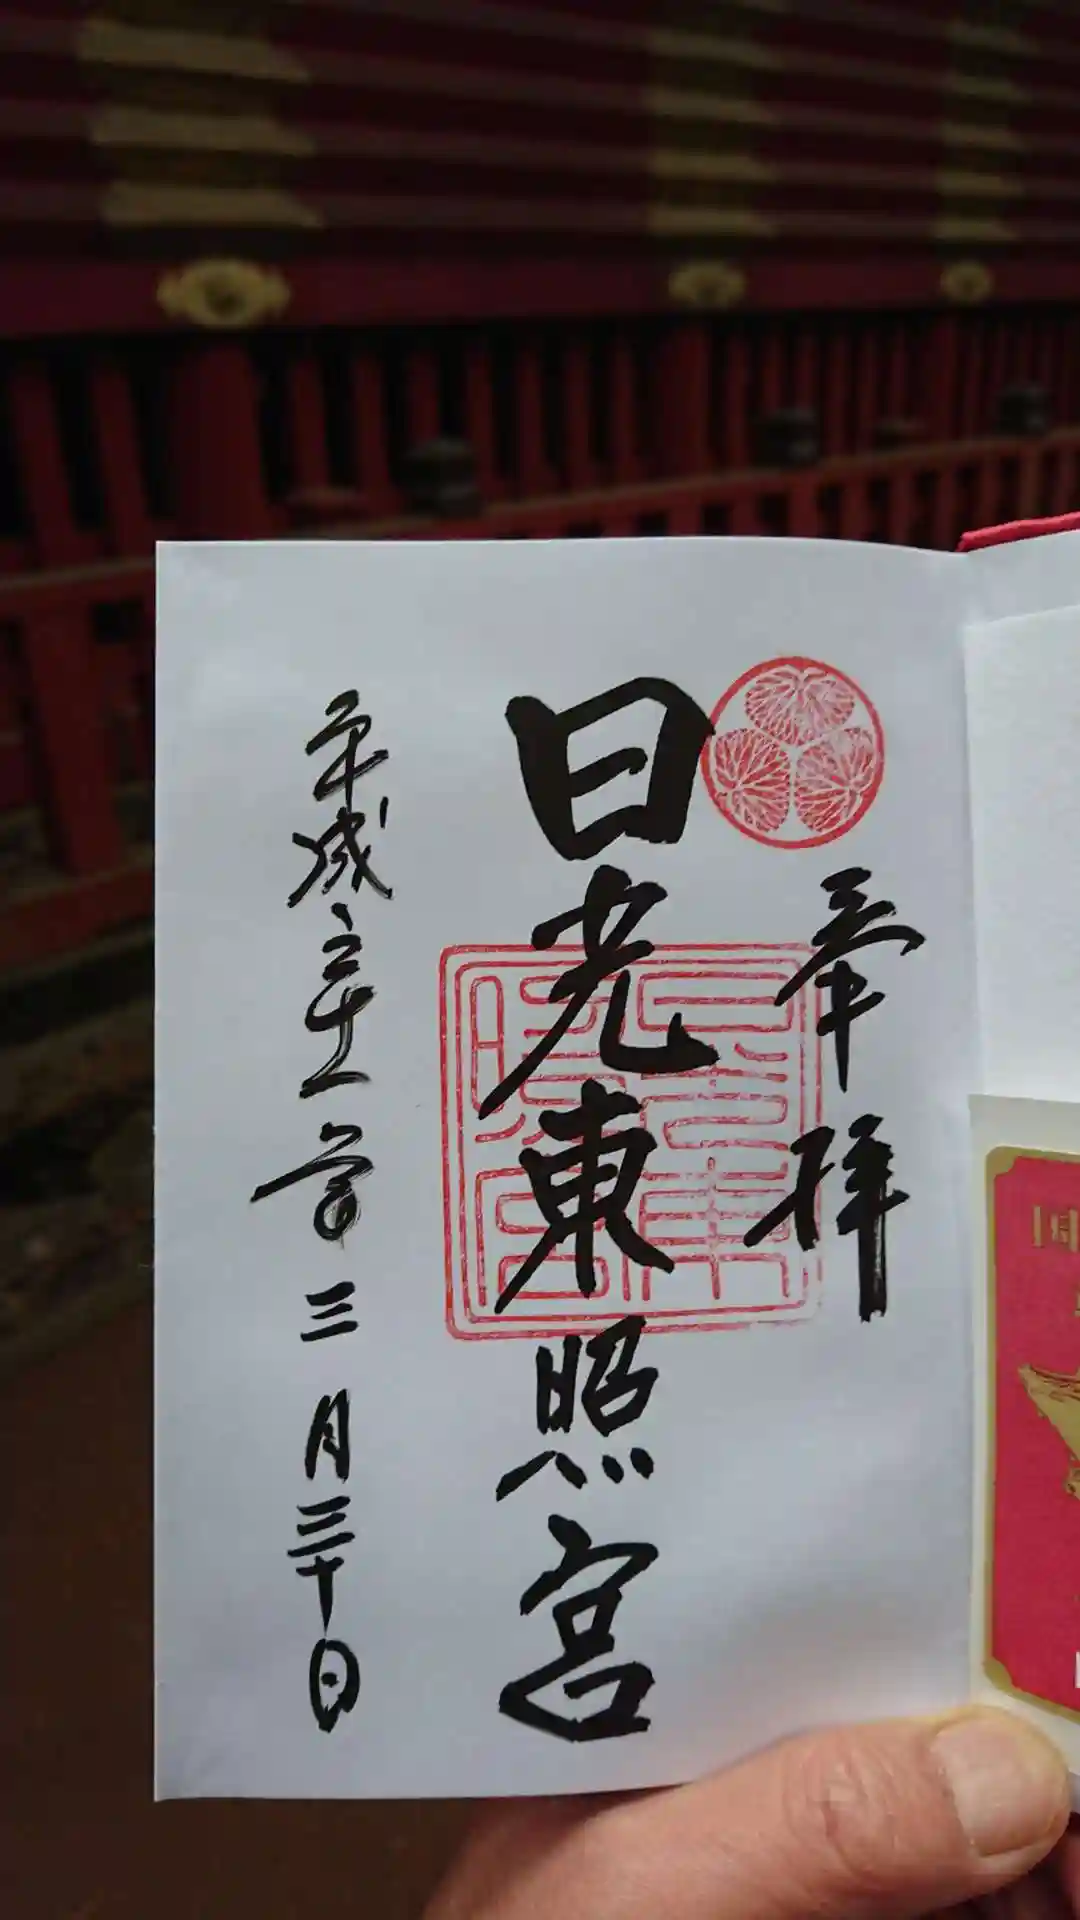 奉拝
日光東照宮
平成三十一年三月三十日
国